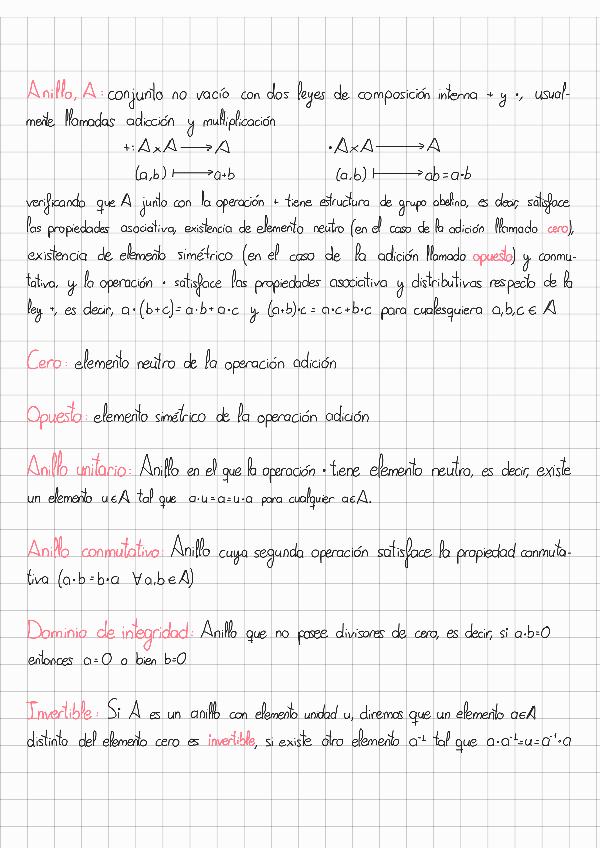 Anillo, A: conjunto no vacío con dos leyes de composición interna + y ·, usual-
mente llamadas adicción y multiplicación
+: A×A ⟶ A   ·A×A ⟶ A
(a,b) ⟼ a+b   (a,b) ⟼ ab=a·b
verificando que A junto con la operación + tiene estructura de grupo abelino, es decir, satisface
las propiedades asociativa, existencia de elemento neutro (en el caso de la adición llamado cero),
existencia de elemento simétrico (en el caso de la adición llamado opuesto) y conmu-
tativa, y la operación · satisface las propiedades asociativa y distributivas respecto de la
ley +, es decir, a·(b+c)=a·b+a·c y (a+b)·c = a·c+b·c para cualesquiera a,b,c ∈ A
Cero: elemento neutro de la operación adición
Opuesto: elemento simétrico de la operación adición
Anillo unitario: Anillo en el que la operación · tiene elemento neutro, es decir, existe
un elemento u∈A tal que a·u=a=u·a para cualquier a∈A.
Anillo conmutativo: Anillo cuya segunda operación satisface la propiedad conmuta-
tiva (a·b=b·a ∀a,b∈A)
Dominio de integridad: Anillo que no posee divisores de cero, es decir, si a·b=0
entonces a=0 o bien b=0
Invertible: Si A es un anillo con elemento unidad u, diremos que un elemento a∈A
distinto del elemento cero es invertible, si existe otro elemento a⁻¹ tal que a·a⁻¹=u=a⁻¹·a